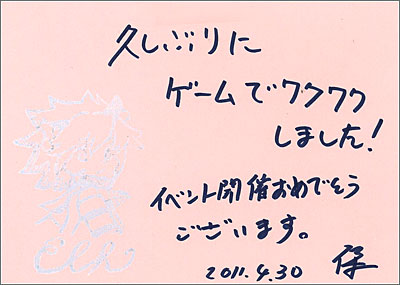 久しぶりに
ゲームでワクワク
しました!
イベント開催おめでとう
ございます。
2011.4.30 保